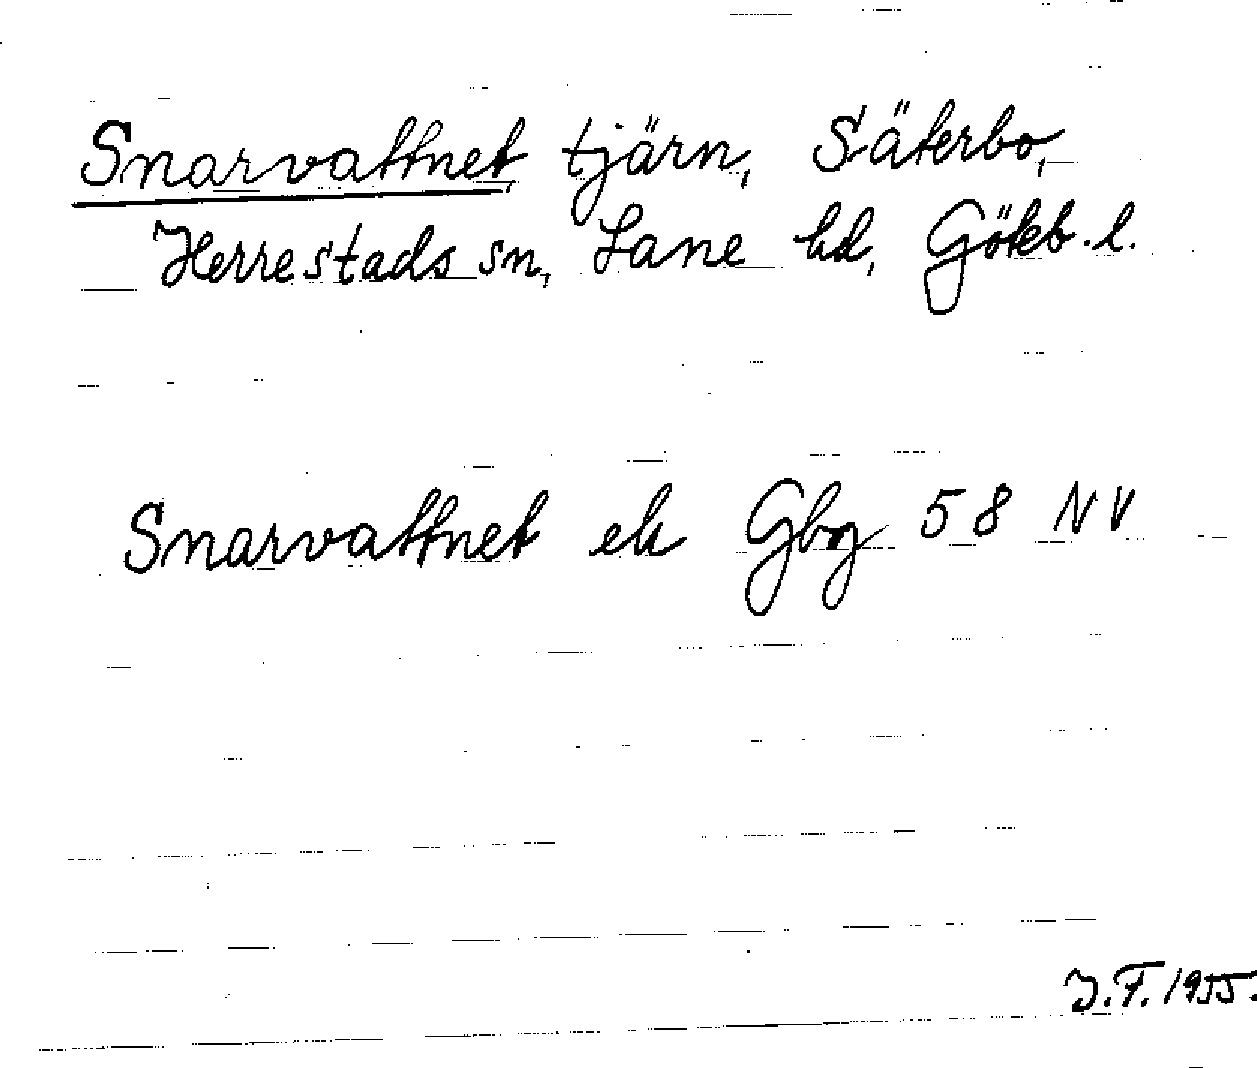 Snarvattnet, tjärn, Säterbo,
Herrestads sn, Lane hd, Göteb. l.
Snarvattnet ek Gbg 58 NV
J.F. 1955.